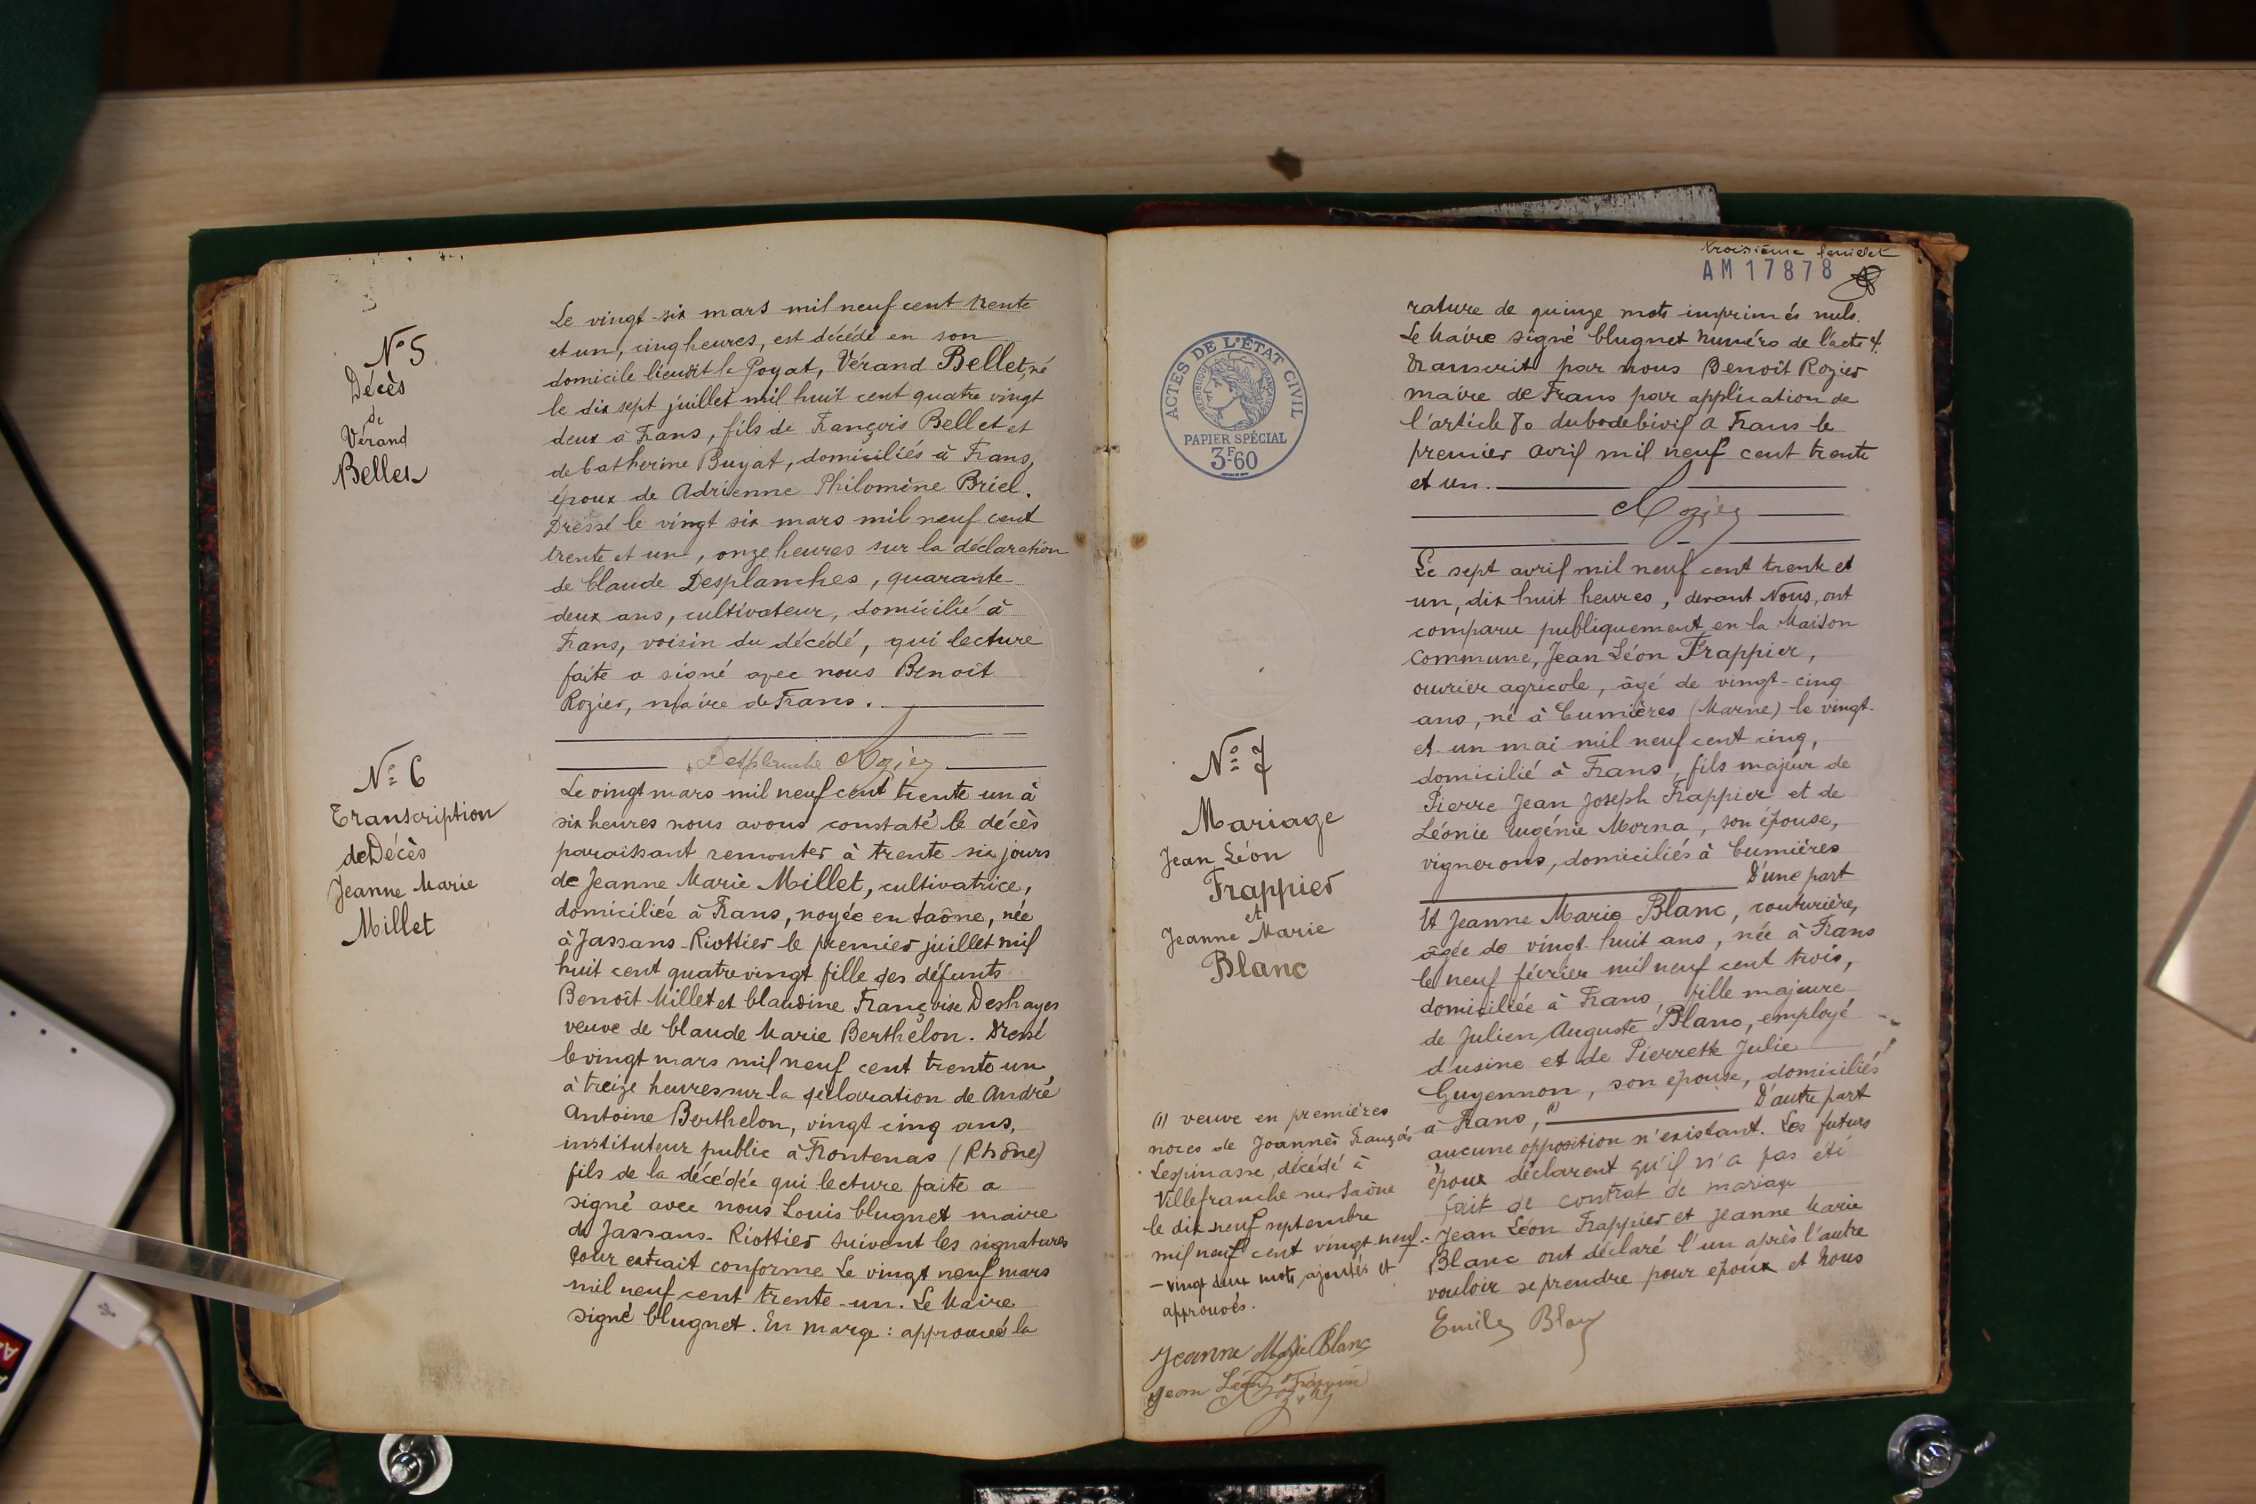 N° 5
Décès
de
Vérand
Bellet
Le vingt-six mars mil neuf cent trente
et un, cinq heures, est décédé en son
domicile lieudit le Poyat, Vérand Bellet, né
le dix sept juillet mil huit cent quatre vingt
deux à Frans, fils de François Bellet et
de Catherine Buyat, domiciliés à Frans,
époux de Adrienne Philomène Briel.
Dressé le vingt six mars mil neuf cent
trente et un, onze heures sur la déclaration
de Claude Desplanches, quarante
deux ans, cultivateur, domicilié à
Frans, voisin du décédé, qui lecture
faite a signé avec nous Benoît
Rozier, maire de Frans.
Desplanche Rozier
N° 6
Transcription
de Décès
Jeanne Marie
Millet
Le vingt mars mil neuf cent trente un à
six heures nous avons constaté le décès
paraissant remonter à trente six jours
de Jeanne Marie Millet, cultivatrice,
domiciliée à Frans, noyée en Saône, née
à Jassans-Riottier le premier juillet mil
huit cent quatre vingt fille des défunts
Benoît Millet et Claudine Françoise Deshayes
veuve de Claude Marie Berthelon. Dressé
le vingt mars mil neuf cent trente un
à treize heures sur la déclaration de André
Antoine Berthelon, vingt cinq ans,
instituteur public à Frontenas (Rhône)
fils de la décédée qui lecture faite a
signé avec nous Louis Clugnet maire
de Jassans-Riottier suivent les signatures
Pour extrait conforme Le vingt neuf mars
mil neuf cent trente-un. Le Maire
signé Clugnet. En marge : approuvé la
troisième feuillet
AM 17878
rature de quinze mots imprimés nuls.
Le Maire signé Clugnet Numéro de l'acte 4.
Transcrit par nous Benoît Rozier
maire de Frans par application de
l'article 80 du Code Civil à Frans le
premier avril mil neuf cent trente
et un.
Rozier
ACTES DE L'ÉTAT CIVIL
RÉPUBLIQUE FRANÇAISE
PAPIER SPÉCIAL
3F.60
N° 7
Mariage
Jean Léon
Frappier
et
Jeanne Marie
Blanc
Le sept avril mil neuf cent trente et
un, dix huit heures, devant Nous, ont
comparu publiquement en la Maison
Commune, Jean Léon Frappier,
ouvrier agricole, âgé de vingt-cinq
ans, né à Cumières (Marne) le vingt
et un mai mil neuf cent cinq,
domicilié à Frans, fils majeur de
Pierre Jean Joseph Frappier et de
Léonie Eugénie Morna, son épouse,
vignerons, domiciliés à Cumières
D'une part
Et Jeanne Marie Blanc, couturière,
âgée de vingt huit ans, née à Frans
le neuf février mil neuf cent trois,
domiciliée à Frans, fille majeure
de Julien Auguste Blanc, employé
d'usine et de Pierrette Julie
Guyennon, son épouse, domiciliés
à Frans, (1) D'autre part
aucune opposition n'existant. Les futurs
époux déclarent qu'il n'a pas été
fait de contrat de mariage
Jean Léon Frappier et Jeanne Marie
Blanc ont déclaré l'un après l'autre
vouloir se prendre pour époux et Nous
(1) veuve en premières
noces de Joannès François
Lespinasse, décédé à
Villefranche sur Saône
le dix neuf septembre
mil neuf cent vingt neuf.
- vingt deux mots ajoutés et
approuvés.
Jeanne Marie Blanc
Jean Léon Frappier
Rozier